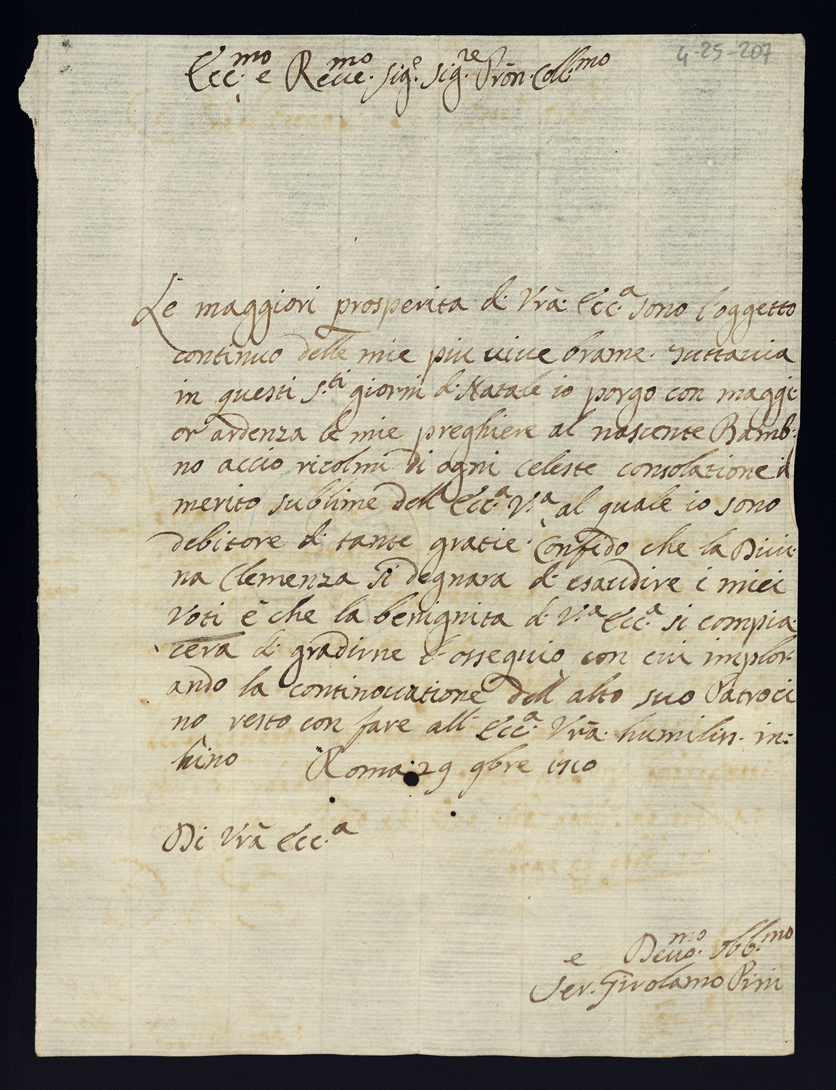 4-25-207
Ecc.mo e Reve.mo Sig.e Sig.re Prõn Coll.mo
Le maggiori prosperita di Vrã Ecc.a sono l'oggetto
continuo delle mie piu vive brame. Tuttavia
in questi S.ti giorni di Natale io porgo con maggi
or ardenza le mie preghiere al nascente Bamb:
no accio ricolmi di ogni celeste consolatione il
merito sublime dell'Ecc.a V.a al quale io sono
debitore di tante gratie. Confido che la Divi:
na Clemenza si degnara di esaudire i miei
voti è che la benignita di V.a Ecc.a si compia
cera di gradirne l'ossequio con cui implor:
ando la continovatione dell'alto suo Patroci
no resto con fare all'Ecc.a Vrã humiliss. in:
hino Roma 29 9bre 1710
Di Vrã Ecc.a
Devo.mo Obb.mo
e Ser. Girolamo Pini